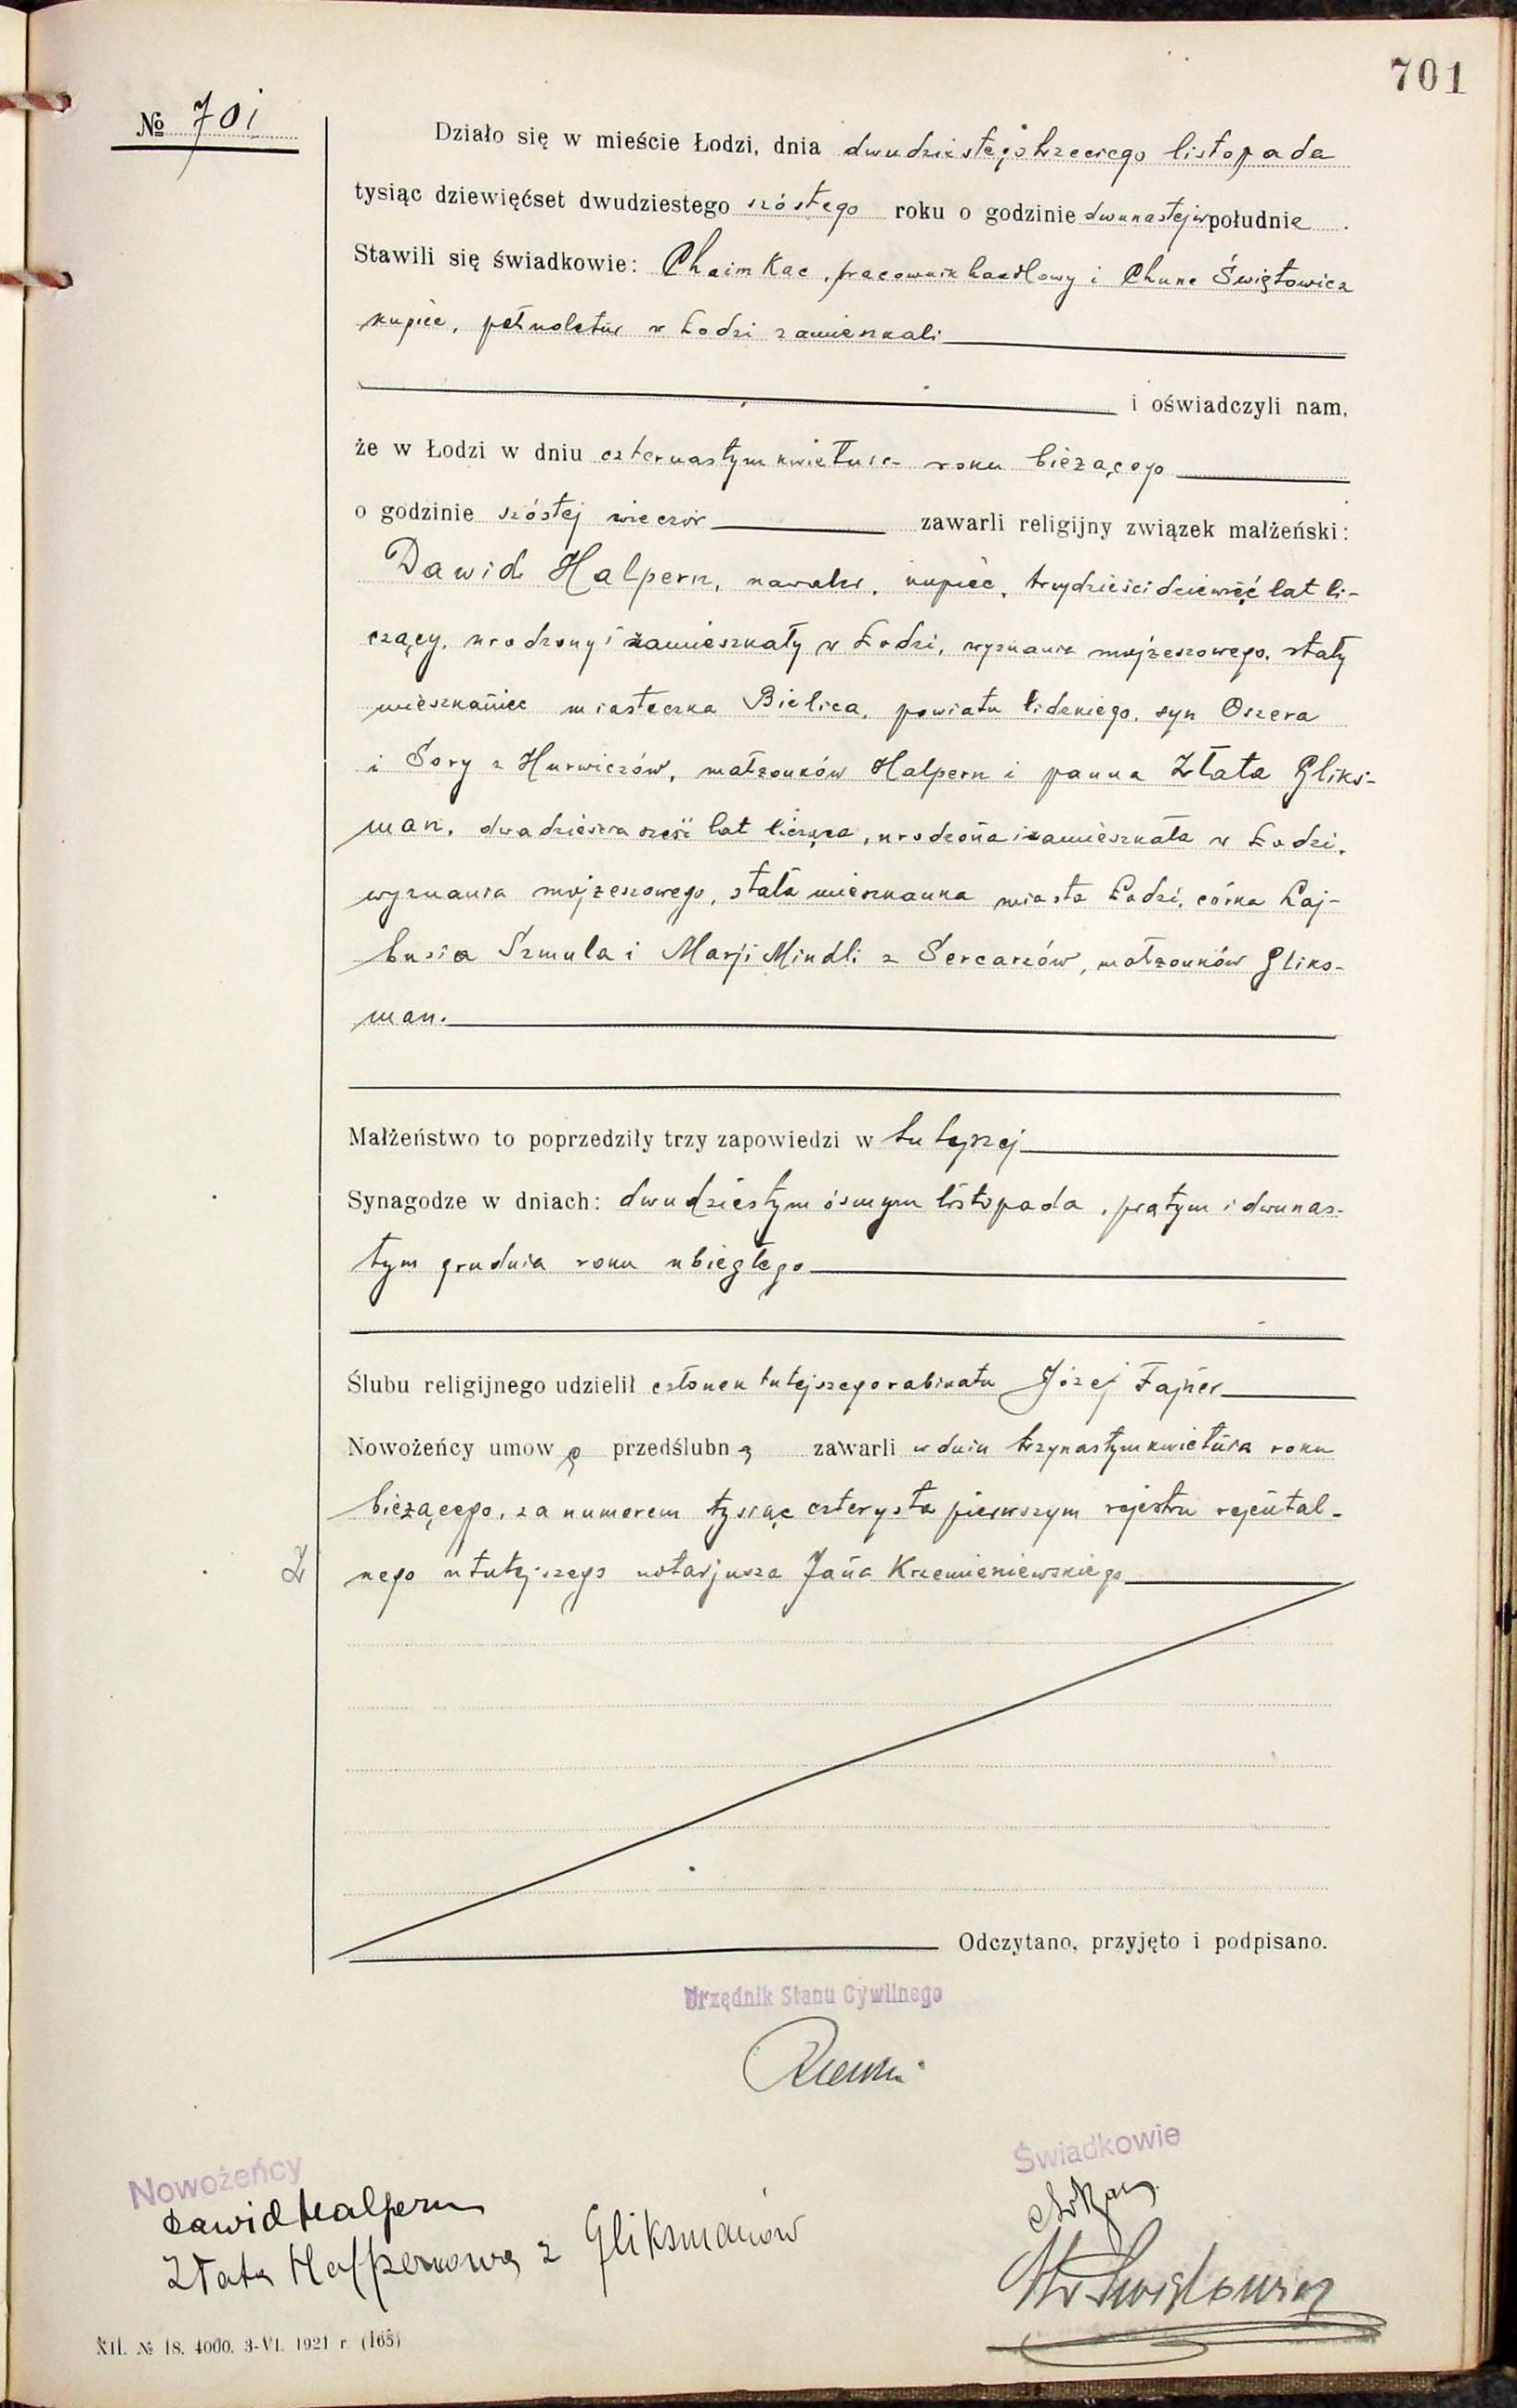 701
№ 701
Działo się w mieście Łodzi, dnia dwudziestego trzeciego listopada
tysiąc dziewięćset dwudziestego szóstego roku o godzinie dwunastej w południe.
Stawili się świadkowie: Chaim Kac, pracownik handlowy i Chune Świętowicz
kupiec, pełnoletni w Łodzi zamieszkali
i oświadczyli nam,
że w Łodzi w dniu czternastym kwietnia roku bieżącego
o godzinie szóstej wieczór zawarli religijny związek małżeński:
Dawid Halpern, kawaler, kupiec, trzydzieści dziewięć lat li-
czący, urodzony i zamieszkały w Łodzi, wyznania mojżeszowego, stały
mieszkaniec miasteczka Bielica, powiatu lidzkiego, syn Oszera
i Sory z Hurwiczów, małżonków Halpern i panna Złata Gliks-
man, dwadzieścia sześć lat licząca, urodzona i zamieszkała w Łodzi,
wyznania mojżeszowego, stała mieszkanka miasta Łodzi, córka Laj-
busia Szmula i Marji Mindli z Sercarzów, małżonków Gliks-
man.
Małżeństwo to poprzedziły trzy zapowiedzi w tutejszej
Synagodze w dniach: dwudziestym ósmym listopada, piątym i dwunas-
tym grudnia roku ubiegłego
Ślubu religijnego udzielił członek tutejszego rabinatu Józef Fajner
Nowożeńcy umow ę przedślubn ą zawarli w dniu trzynastym kwietnia roku
bieżącego, za numerem tysiąc czterysta pierwszym rejestru rejental-
nego u tutejszego notarjusza Jana Krzemieniewskiego
Odczytano, przyjęto i podpisano.
Urzędnik Stanu Cywilnego
Nowożeńcy
Dawid Halpern
Złata Halpernowa z Gliksmanów
Świadkowie
Świętowicz
XII. № 18. 4000. 3-VI. 1921 r. (165)